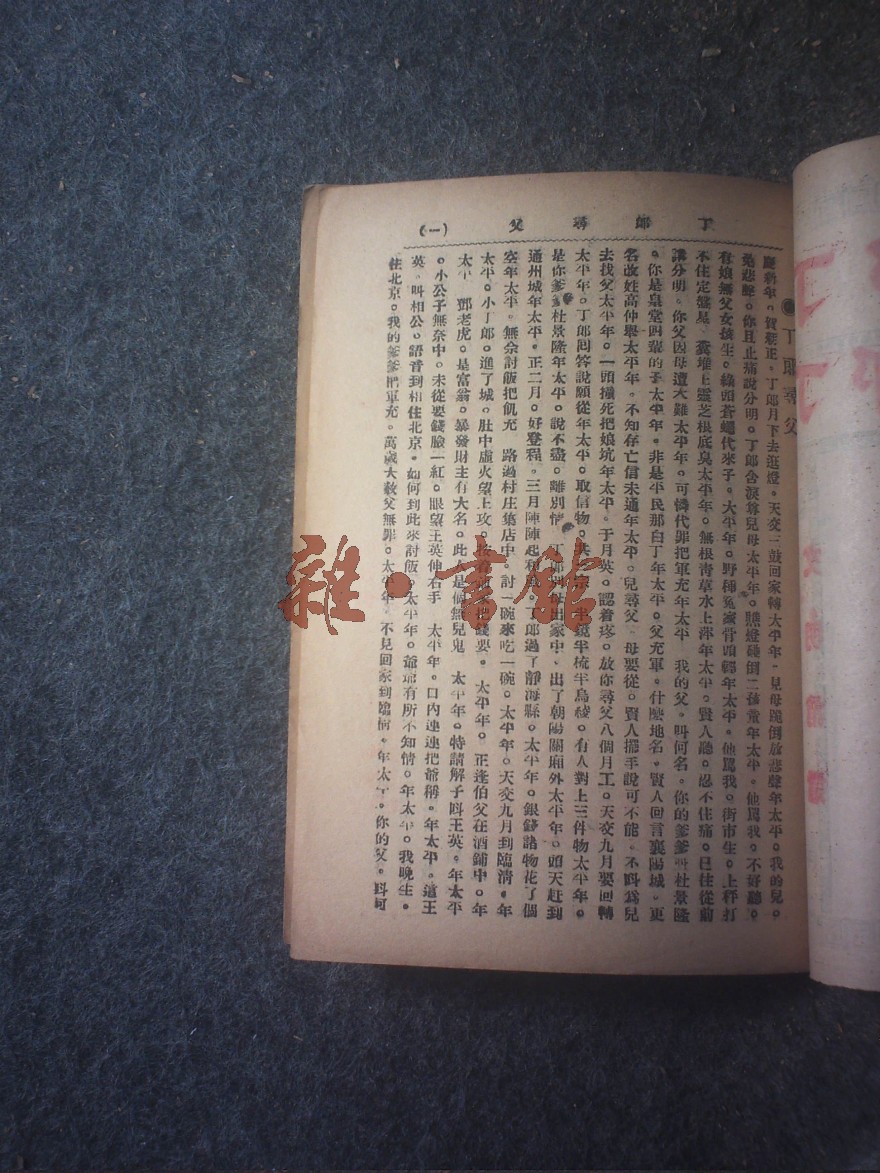 丁郎尋父 (一)
●丁郎尋父
慶新年。賀新正。丁郎月下去逛燈。天交二鼓回家轉太平年。見母跪倒放悲聲年太平。我的兒。
悲聲。你且止痛說分明。丁郎含淚尊兒母太平年。觀燈碰倒二孩童年太平。他罵我。不好聽。
有娘無父女孩生。綠頭蒼蠅代來子。大平年。野種冤家骨頭輕年太平。他罵我。街市生。上秤打
不住定盤星。糞堆上靈芝根底臭太平年。無根靑草水上萍年太平。賢人聽。忍不住痛。已往從前
講分明。你父因母遭大難太平年。可憐代罪把軍充年太平 我的父。叫何名。你的爹爹叫杜景隆
。你是皇堂四輩的子太平年。非是平民那白丁年太平。父充軍。什麼地名。賢人回言襄陽城。更
名改姓高仲舉太平年。不知存亡信未通年太平。兒尋父。母要從。賢人擺手說可不能。不叫爲兒
去找父太平年。一頭撞死把娘坑年太平。于月英。認着疼。放你尋父八個月工。天交九月要回轉
太平年。丁郎回答說願從年太平。取信物。半鏡半梳半烏綾。有人對上三件物太平年。
是你爹爹杜景隆年太平。說不盡。離別情 丁郎別母出家中、出了朝陽關廂外太平年。頭天赶到
通州城年太平。正二月。好登程。三月陣陣起和風。丁郎過了靜海縣。太平年。銀錢諸物花了個
空年太平。無奈討飯把飢充 路過村庄集店中。討一碗來吃一碗。太平年。天交九月到臨淸。年
太平。小丁郎。進了城。肚中虛火望上攻。把錢要。太平年。正逢伯父在酒鋪中。年
太平 鄧老虎。是富翁。暴發財主有大名。此人是個無兒鬼 太平年。特請解子叫王英。年太平
。小公子無奈中。未從要錢臉一紅。眼望王英伸右手 太平年。口內連連把爺稱。年太平。這王
英。叫相公。語音到相住北京。如何到此來討飯。太平年。爺爺有所不知情。年太平。我晚生。
住北京。我的爹爹把軍充。萬歲大赦父無罪。太平年。不見回家到臨淸。年太平。你的父。叫何
雜·書館